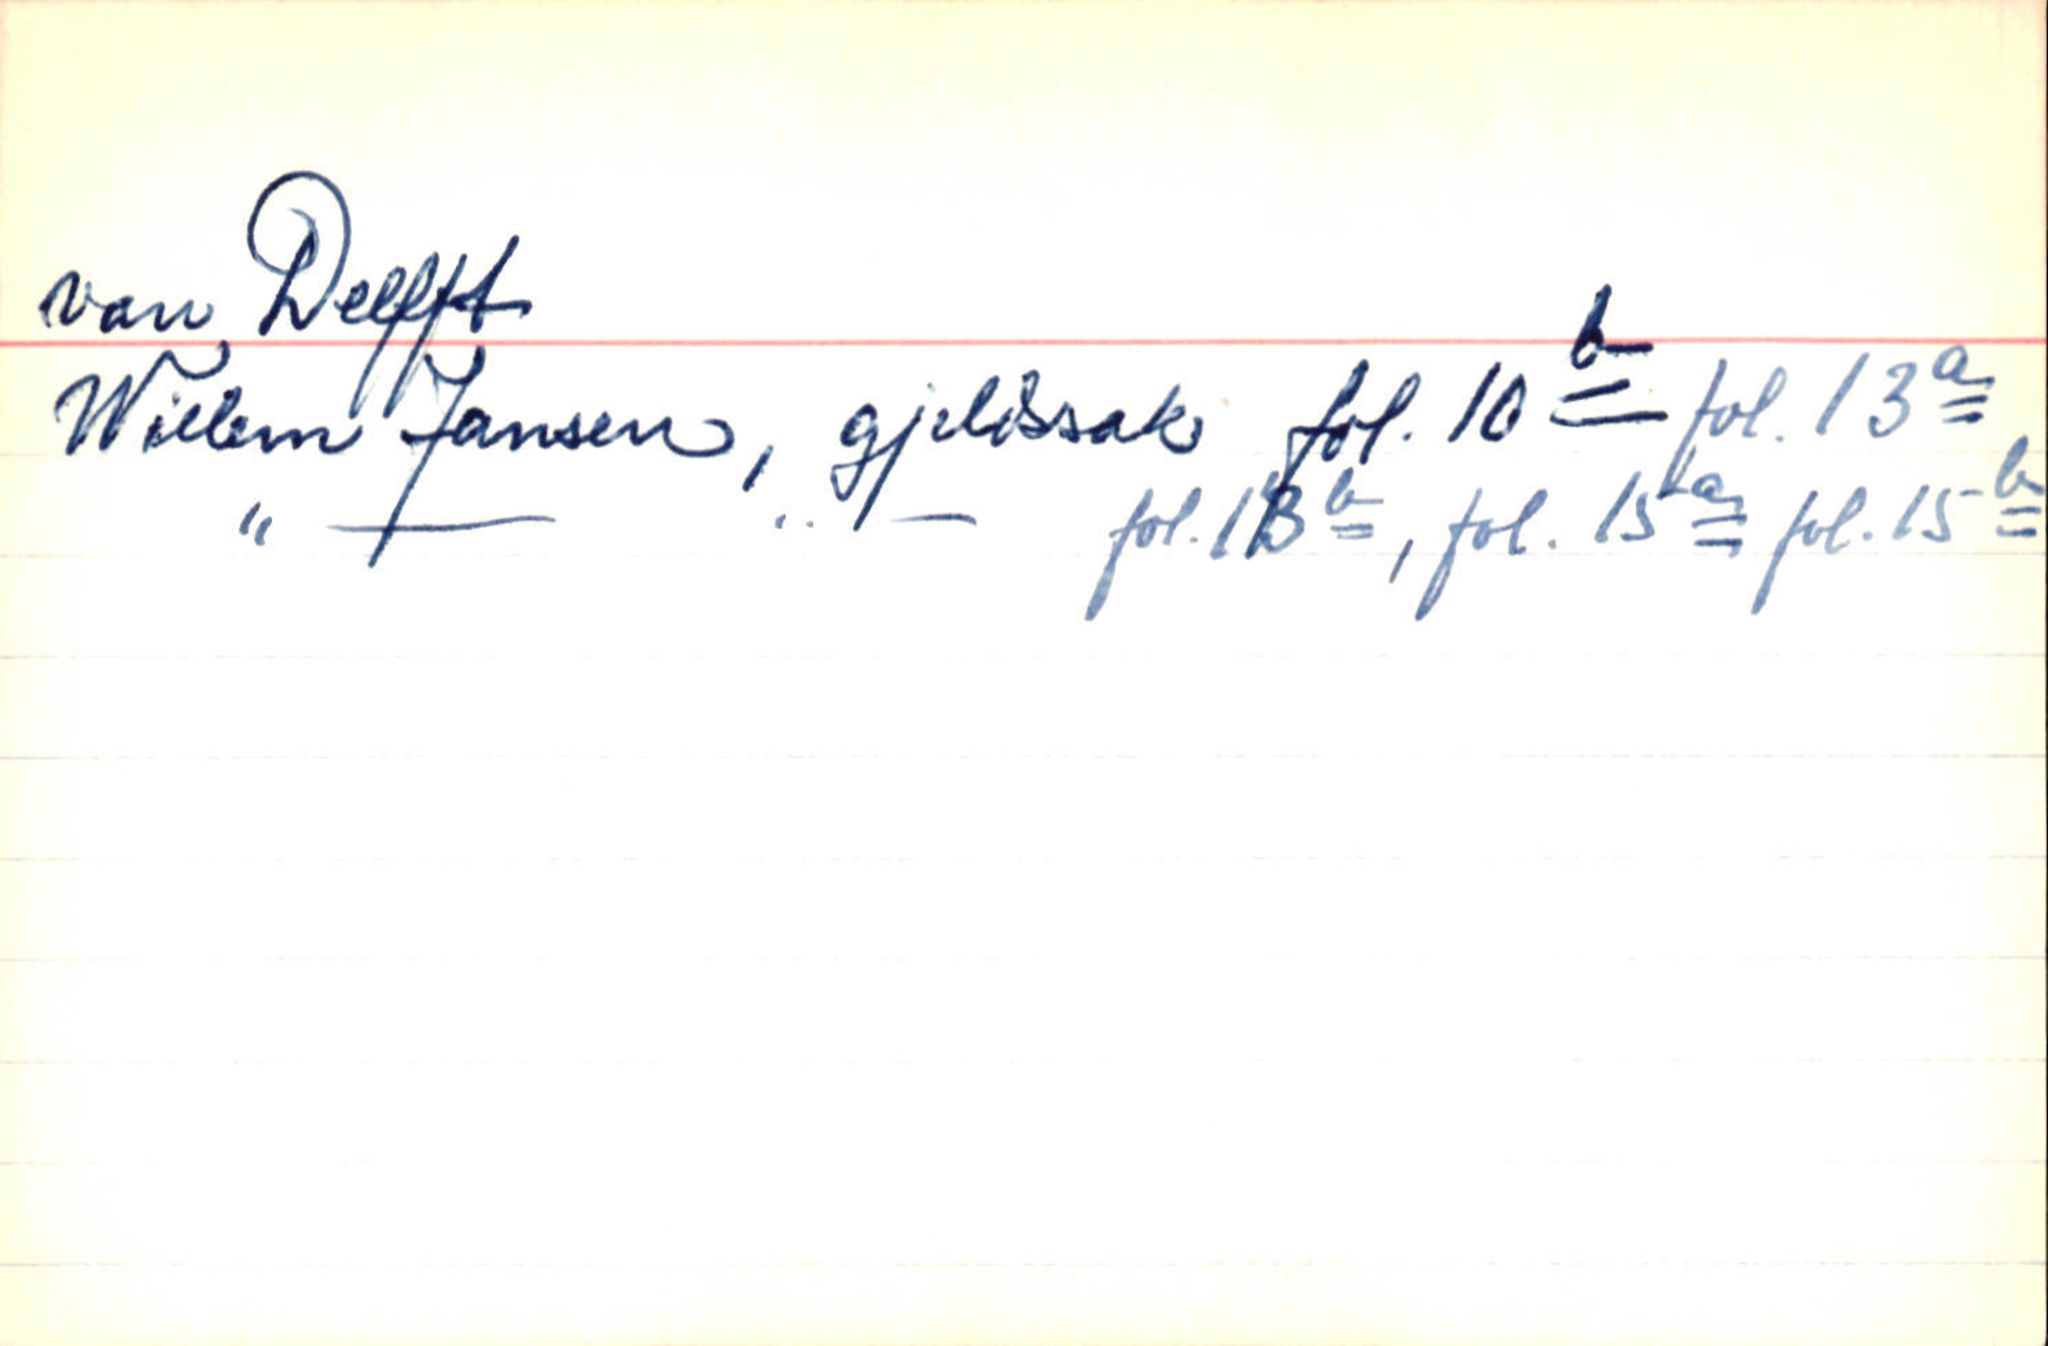 van Delfft
Willem Jansen, gjeldssak fol. 10 b fol. 13 a
" — " — fol. 13 b, fol. 15 a fol. 15 b